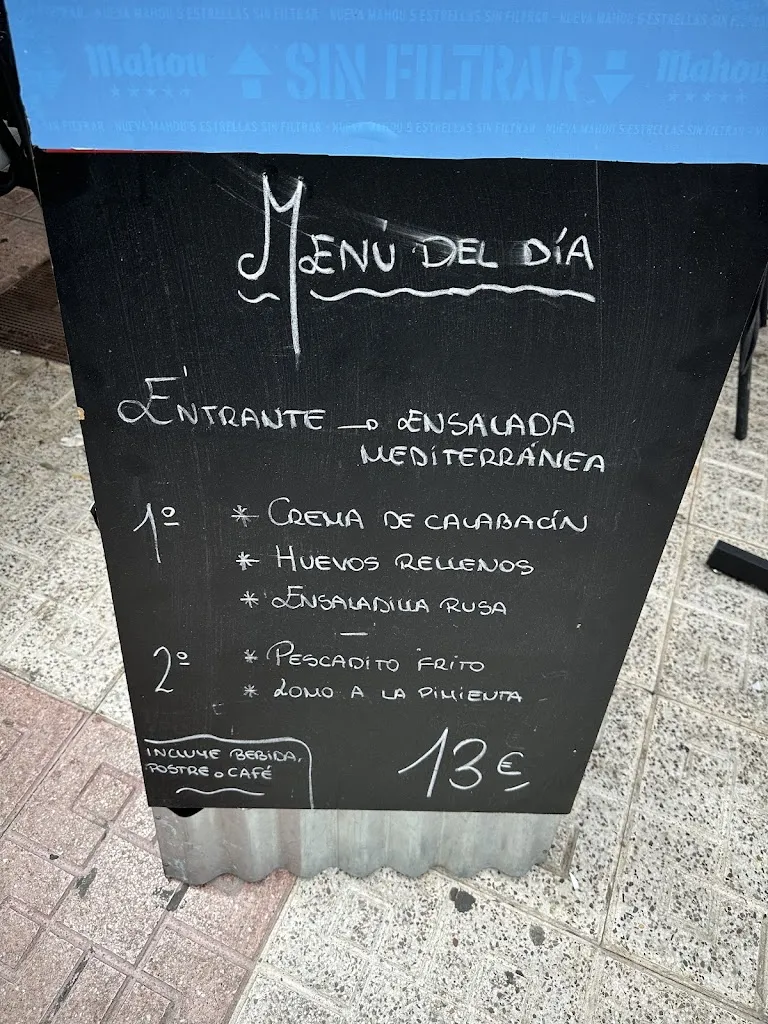 NUEVA MAHOU 5 ESTRELLAS SIN FILTRAR - NUEVA MAHOU 5 ESTRELLAS SIN FILTRAR
Mahou SIN FILTRAR Mahou
SIN FILTRAR - NUEVA MAHOU 5 ESTRELLAS SIN FILTRAR - NUEVA MAHOU 5 ESTRELLAS SIN FILTRAR
MENÚ DEL DÍA
ENTRANTE → ENSALADA
MEDITERRÁNEA
1º * CREMA DE CALABACÍN
* HUEVOS RELLENOS
* ENSALADILLA RUSA
2º * PESCADITO FRITO
* LOMO A LA PIMIENTA
INCLUYE BEBIDA,
POSTRE o CAFÉ
13€